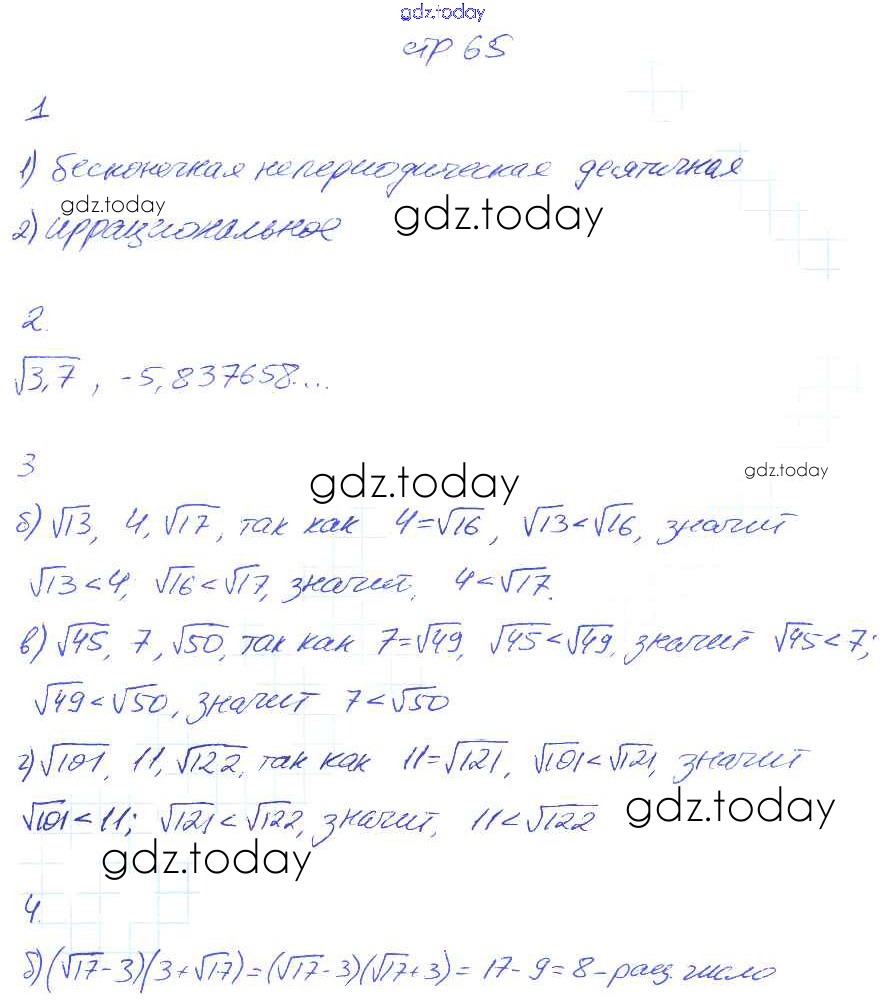 gdz.today
стр 65
1
1) бесконечная непериодическая десятичная
gdz.today
gdz.today
2) иррациональное
2.
√3,7 , -5,837658...
3
gdz.today
gdz.today
б) √13, 4, √17, так как 4=√16, √13<√16, значит
√13<4; √16<√17, значит, 4<√17.
в) √45, 7, √50, так как 7=√49, √45<√49, значит √45<7;
√49<√50, значит 7<√50
г) √101, 11, √122, так как 11=√121, √101<√121, значит
√101<11; √121<√122, значит, 11<√122
gdz.today
gdz.today
4.
б) (√17-3)(3+√17)=(√17-3)(√17+3)=17-9=8-рац. число